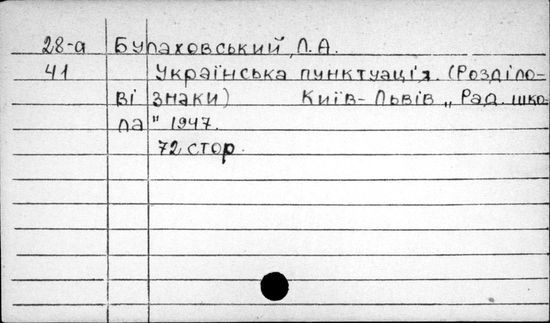 28-а Булаховський, Л. А.
41 Українська пунктуація. (Розділо-
ві знаки) Київ-Львів „Рад. шко
ла" 1947.
72 стор.